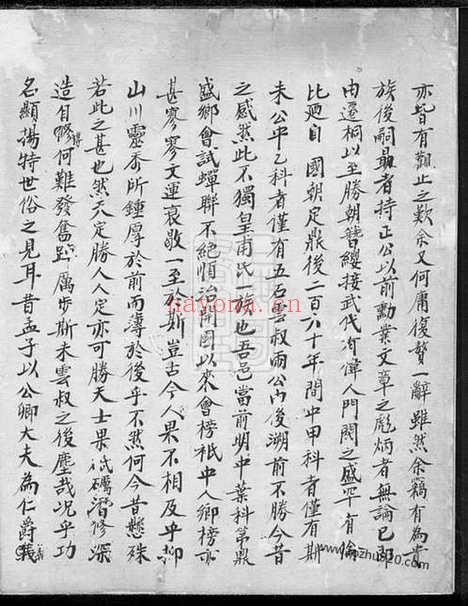 亦皆有觀止之歎余又何庸復贅一辭雖然余竊有為貴
族後嗣最者持正公以前勳業文章之彪炳者無論已即
由遷桐以至勝朝簪纓接武代有偉人門閥之盛罕有倫
比迺自 國朝定鼎後二百六十年間中甲科者僅有斯
未公中乙科者僅有五 雲叔雨公 後溯前不勝今昔
之感然此不獨皇甫氏一族也吾邑當前明中葉科第鼎
盛鄉會試蟬聯不絕 同治 以來會榜祇中人鄉榜亦
甚寥寥文運衰敝一至於斯豈古今人果不相及乎抑
山川靈秀所鍾厚於前而薄於後乎不然何今昔懸殊
若此之甚也然天定勝人人定亦可勝天士果砥礪潛修深
造自得何難發奮 厲步斯未雲叔之後塵哉況乎功
名顯揚特世俗之見耳昔孟子以公卿大夫為仁爵義
nayona.cn
www.pzhu20.com